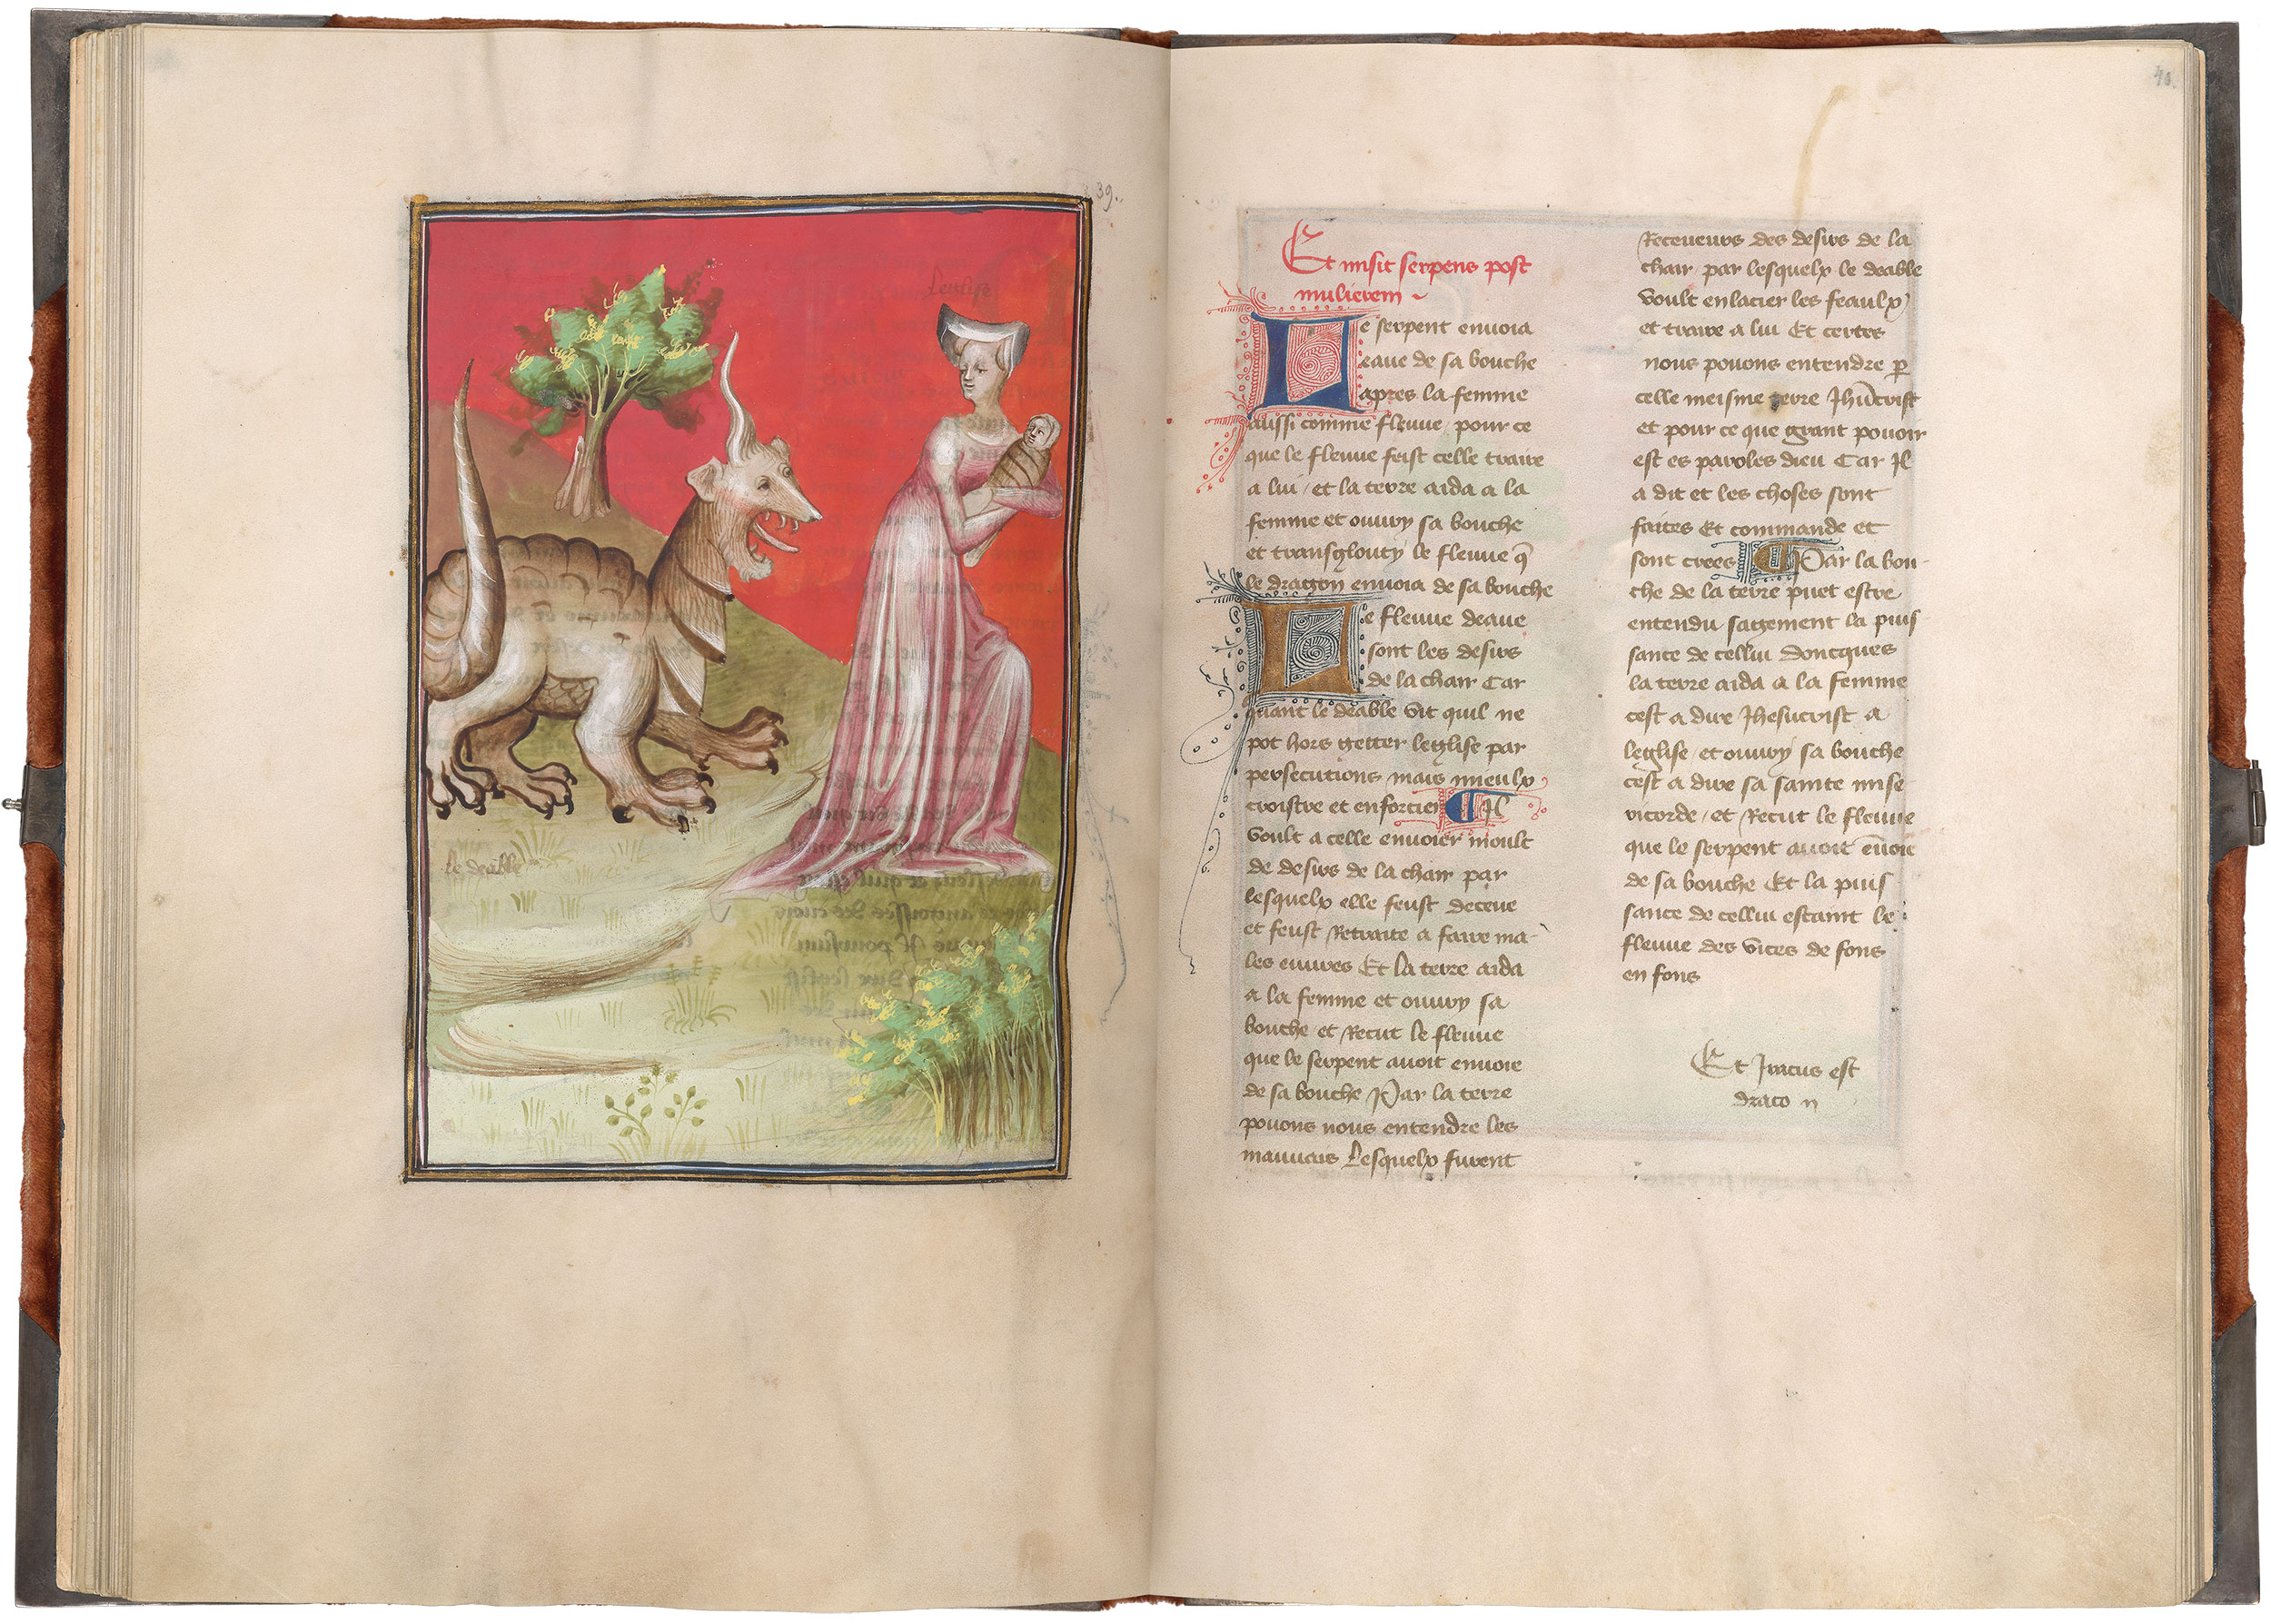 39.
Leglise
le deable
40.
Et misit serpens post
mulierem
Le serpent enuoia
eaue de sa bouche
apres la femme
aussi comme fleuue pour ce
que le fleuue feist celle traire
a lui et la terre aida a la
femme et ouury sa bouche
et transglouty le fleuue q̄
le dragon enuoia de sa bouche
Le fleuue deaue
sont les desirs
de la chair Car
quant le deable vit quil ne
pot hors getter leglise par
persecutions mais mieulx
croistre et enforcier ¶ Il
voult a celle enuoier moult
de desirs de la chair par
lesquelx elle feust deceue
et feust Retraite a faire ma-
les euures Et la terre aida
a la femme et ouury sa
bouche et Recut le fleuue
que le serpent auoit enuoie
de sa bouche Par la terre
pouons nous entendre les
mauuais Lesquelx furent
Receueurs des desirs de la
chair par lesquelx le deable
voult enlacier les feaulx
et traire a lui Et certes
nous pouons entendre p̲
celle meisme terre Jhūcrist
et pour ce que grant pouoir
est es paroles dieu Car Il
a dit et les choses sont
faites Et commande et
sont crees ¶ Par la bou-
che de la terre puet estre
entendu sagement la puis
sance de cellui Doncques
la terre aida a la femme
cest a dire Jhesucrist a
leglise et ouury sa bouche
cest a dire sa sainte mise
ricorde et Recut le fleuue
que le serpent auoit ēuoie
de sa bouche Et la puis
sance de cellui estaint le
fleuue des vices de fons
en fons
Et Iratus est
draco n